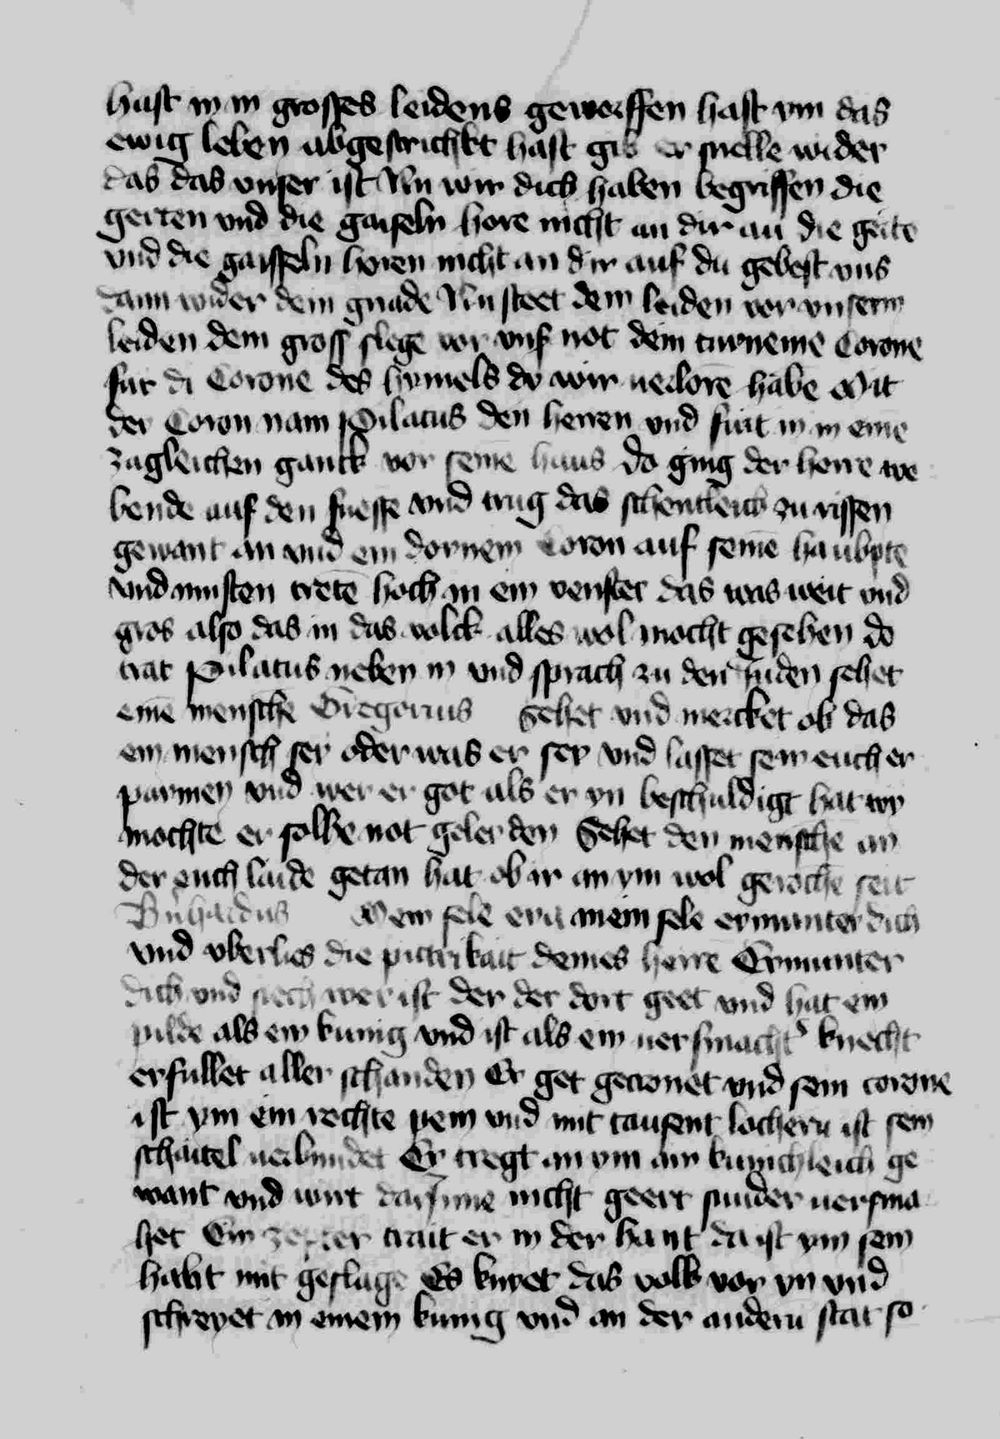 hast in in grosses leidens geworffen hast vm das
ewig leben abgestrichkt hast gib er snelle wider
das das vnser ist Nu wir dich haben begriffen die
gerten vnd die gaiseln hore nicht an dir an die gerte
vnd die gaisseln horen nicht an dir auf du gebest vns
dann wider dein gnade Nu steet dein leiden vor vnserm
leiden dem gross slege vor vns not dein turneine Corone
fur di Corone des hymels do wir verlorē habē Mit
der Coron nam Pilatus den herren vnd furt in in eine
zugleichen ganck vor seine haus Do ging der herre we
bende auf den fuesse vnd trug das schentleich zurissen
gewant an vnd ein dornein Coron auf seinē haubpte
vnd musten tretē hoch in ein venster das was weit vnd
gros also das in das volck alles wol mocht gesehen do
trat Pilatus neben in vnd sprach zu den Juden sehet
einē mensche Gregorius Sehet vnd mercket ob das
ein mensch sey oder was er sey vnd lasset sein euch er
parmen vnd wer er got als er yn beschuldigt hat wy
mochte er solbe not geleyden Sehet den mensche an
der euch laide getan hat ob ir an ym wol gerochē seit
Bernhardus O mein sele eya mein sele ermunter dich
vnd vberlies die pittrikait deines herrē Ermunter
dich vnd siech wer ist der der dort geet vnd hat ein
pilde als ein kunig vnd ist als ein uersmacht' knecht
erfullet aller schanden Er get gecronet vnd sein corone
ist ym ein rechte pein vnd mit tausent lochern ist sein
schaitel uerbundet Er tregt an ym ain kunichleich ge
want vnd wirt darInne nicht geert sunder uersma
het Ein zepter trait er in der hant da ist ym sein
habt mit geslage Es knyet das volk vor yn vnd
schreyet in einem kunig vnd an der andern stat so